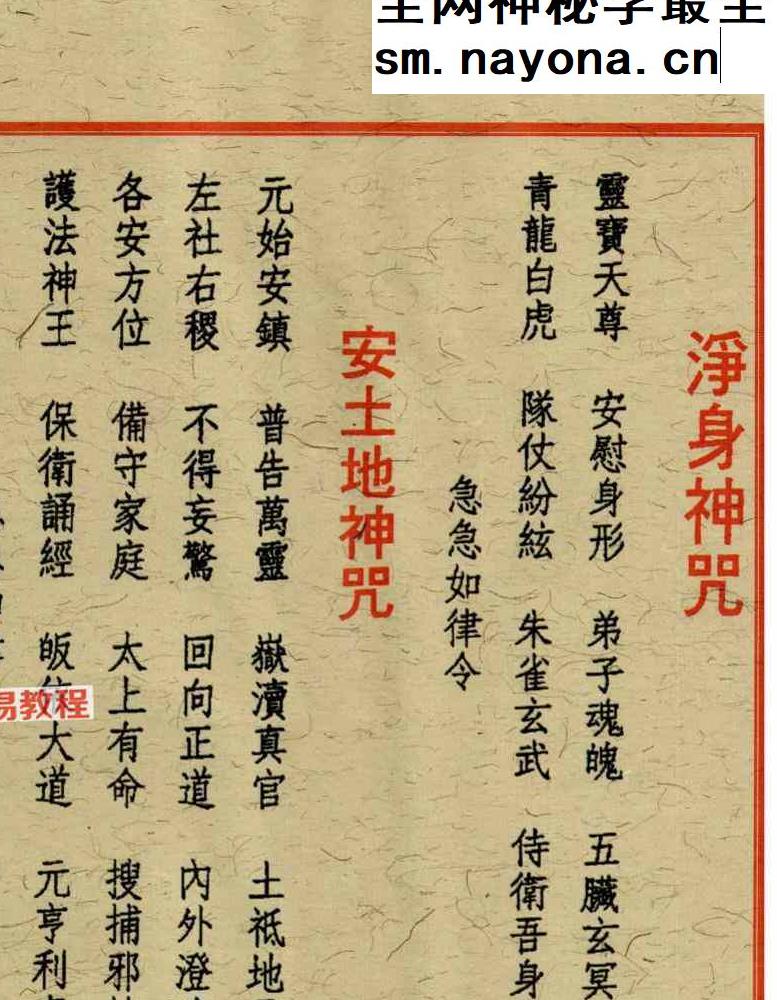 sm.nayona.cn
淨身神咒
靈寶天尊 安慰身形 弟子魂魄 五臟玄冥
青龍白虎 隊仗紛紜 朱雀玄武 侍衛吾身
急急如律令
安土地神咒
元始安鎮 普告萬靈 嶽瀆真官 土祗地
左社右稷 不得妄驚 回向正道 內外澄
各安方位 備守家庭 太上有命 搜捕邪
護法神王 保衛誦經 皈 大道 元亨利
易教程